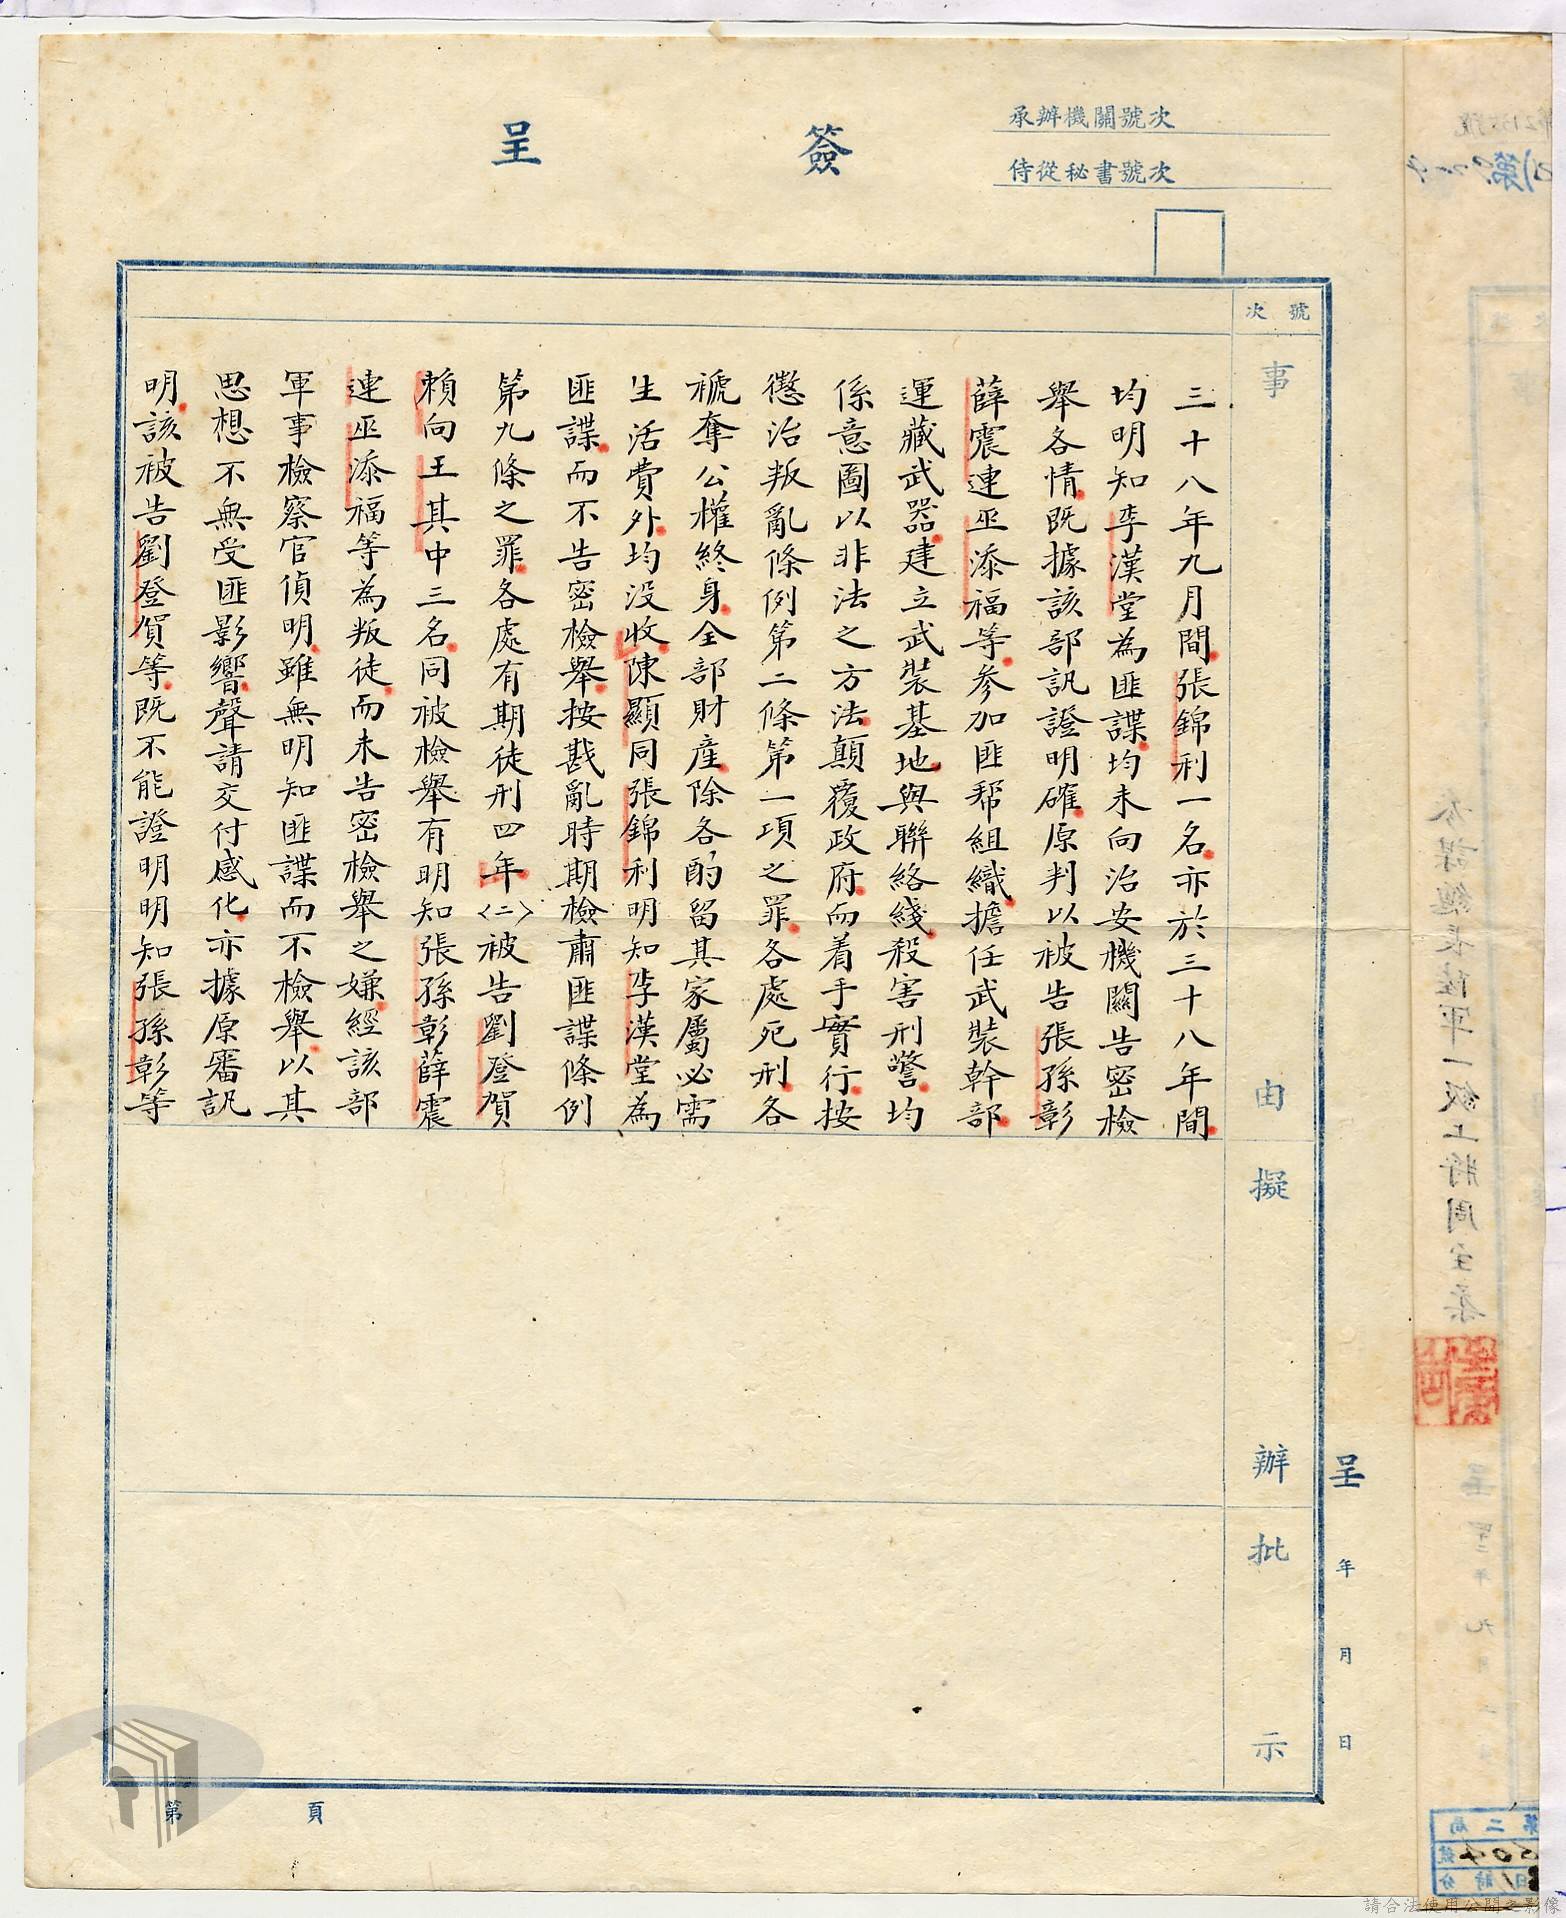 承辦機關號次
侍從秘書號次
簽呈
號次
事由
擬辦
批示
三十八年九月間張錦利一名亦於三十八年間
均明知李漢堂為匪諜均未向治安機關告密檢
舉各情既據該部訊證明確原判以被告張孫彰
薛震連巫添福等參加匪幫組織擔任武裝幹部
運藏武器建立武裝基地與聯絡綫殺害刑警均
係意圖以非法之方法顛覆政府而着手實行按
懲治叛亂條例第二條第一項之罪各處死刑各
褫奪公權終身全部財產除各酌留其家屬必需
生活費外均沒收陳顯同張錦利明知李漢堂為
匪諜而不告密檢舉按戡亂時期檢肅匪諜條例
第九條之罪各處有期徒刑四年〈二〉被告劉登賀
賴向王其中三名同被檢舉有明知張孫彰薛震
連巫添福等為叛徒而未告密檢舉之嫌經該部
軍事檢察官偵明雖無明知匪諜而不檢舉以其
思想不無受匪影響聲請交付感化亦據原審訊
明該被告劉登賀等既不能證明明知張孫彰等
呈 年 月 日
第 頁
參謀總長陸軍一級上將周至柔
呈
第二局
請合法使用公開之影像